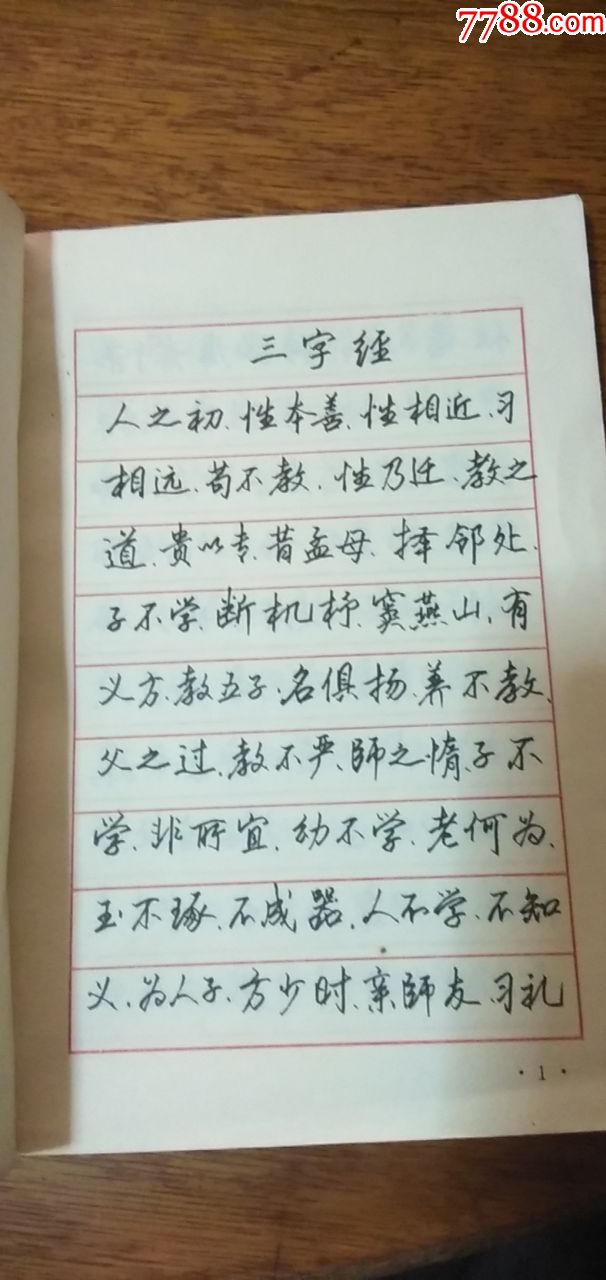 7788.com
三字经
人之初、性本善、性相近、习
相远、苟不教、性乃迁、教之
道、贵以专、昔孟母、择邻处、
子不学、断机杼、窦燕山、有
义方、教五子、名俱扬、养不教、
父之过、教不严、師之惰、子不
学、非所宜、幼不学、老何为、
玉不琢、不成器、人不学、不知
义、为人子、方少时、亲師友、习礼
·1·